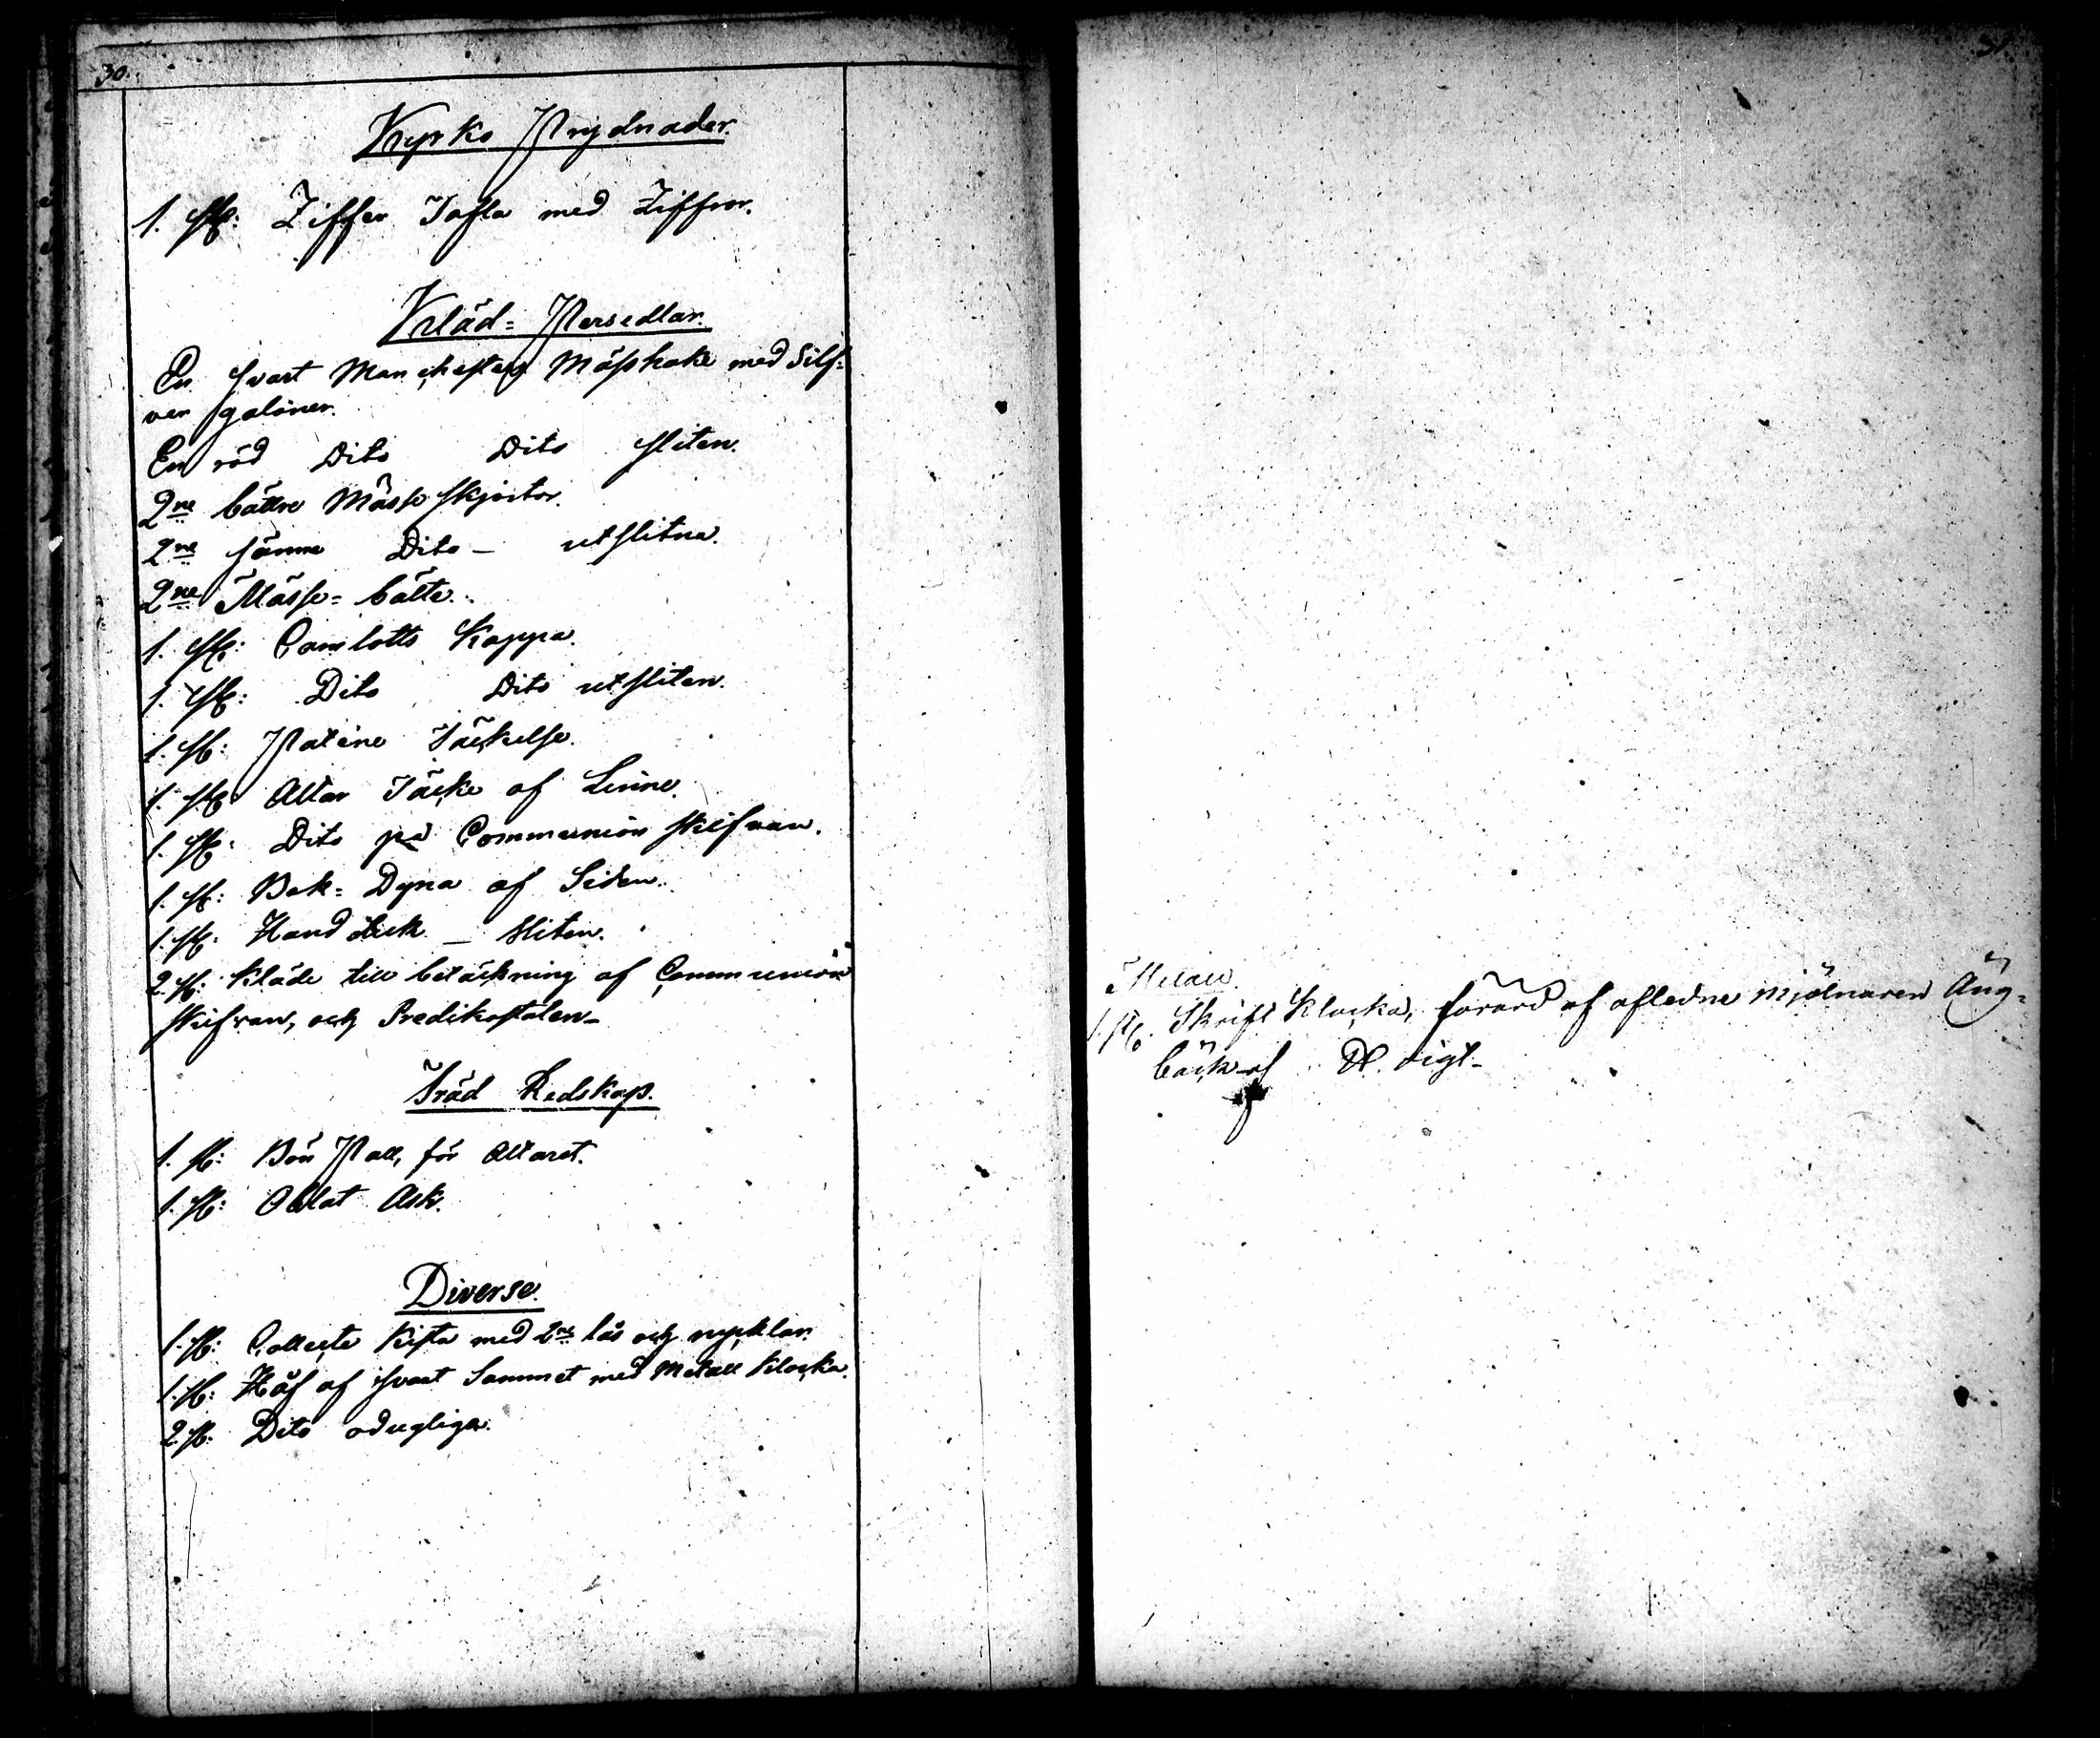 30.
Kyrko Prydnader.
1. st: Ziffer Tafla med Ziffror.
Kläd-Persedlar.
En svart Manchesters Mässhake med Silf-
ver galoner.
En röd Dito Dito sliten.
2ne bättre Mässe skjortor.
2ne sämme Dito – utslitna.
2ne Mässe-bälte.
1. st: Camlotts Kappa.
1. st: Dito Dito utsliten.
1. st: Paténe Täckelse.
1. st: Altar Täcke af Linne.
1. st: Dito på Communion skifvan.
1. st: Bok-Dyna af Siden.
1. st: Handduk – sliten.
2. st: Kläde till betäckning af Communion
skifvan, och Predikostolen –
Träd Redskap.
1. st: Bön Pall, för Altaret.
1. st: Oblat Ask.
Diverse.
1. st: Collecte Kista med 2ne lås och nycklar.
1. st: Håf af svart Sammet med Metall Klocka.
2. st: Dito odugliga.
31.
Metall.
1. st. Skrift Klocka, förärd af afledne mjölnaren Äng-
bäck af vigt –